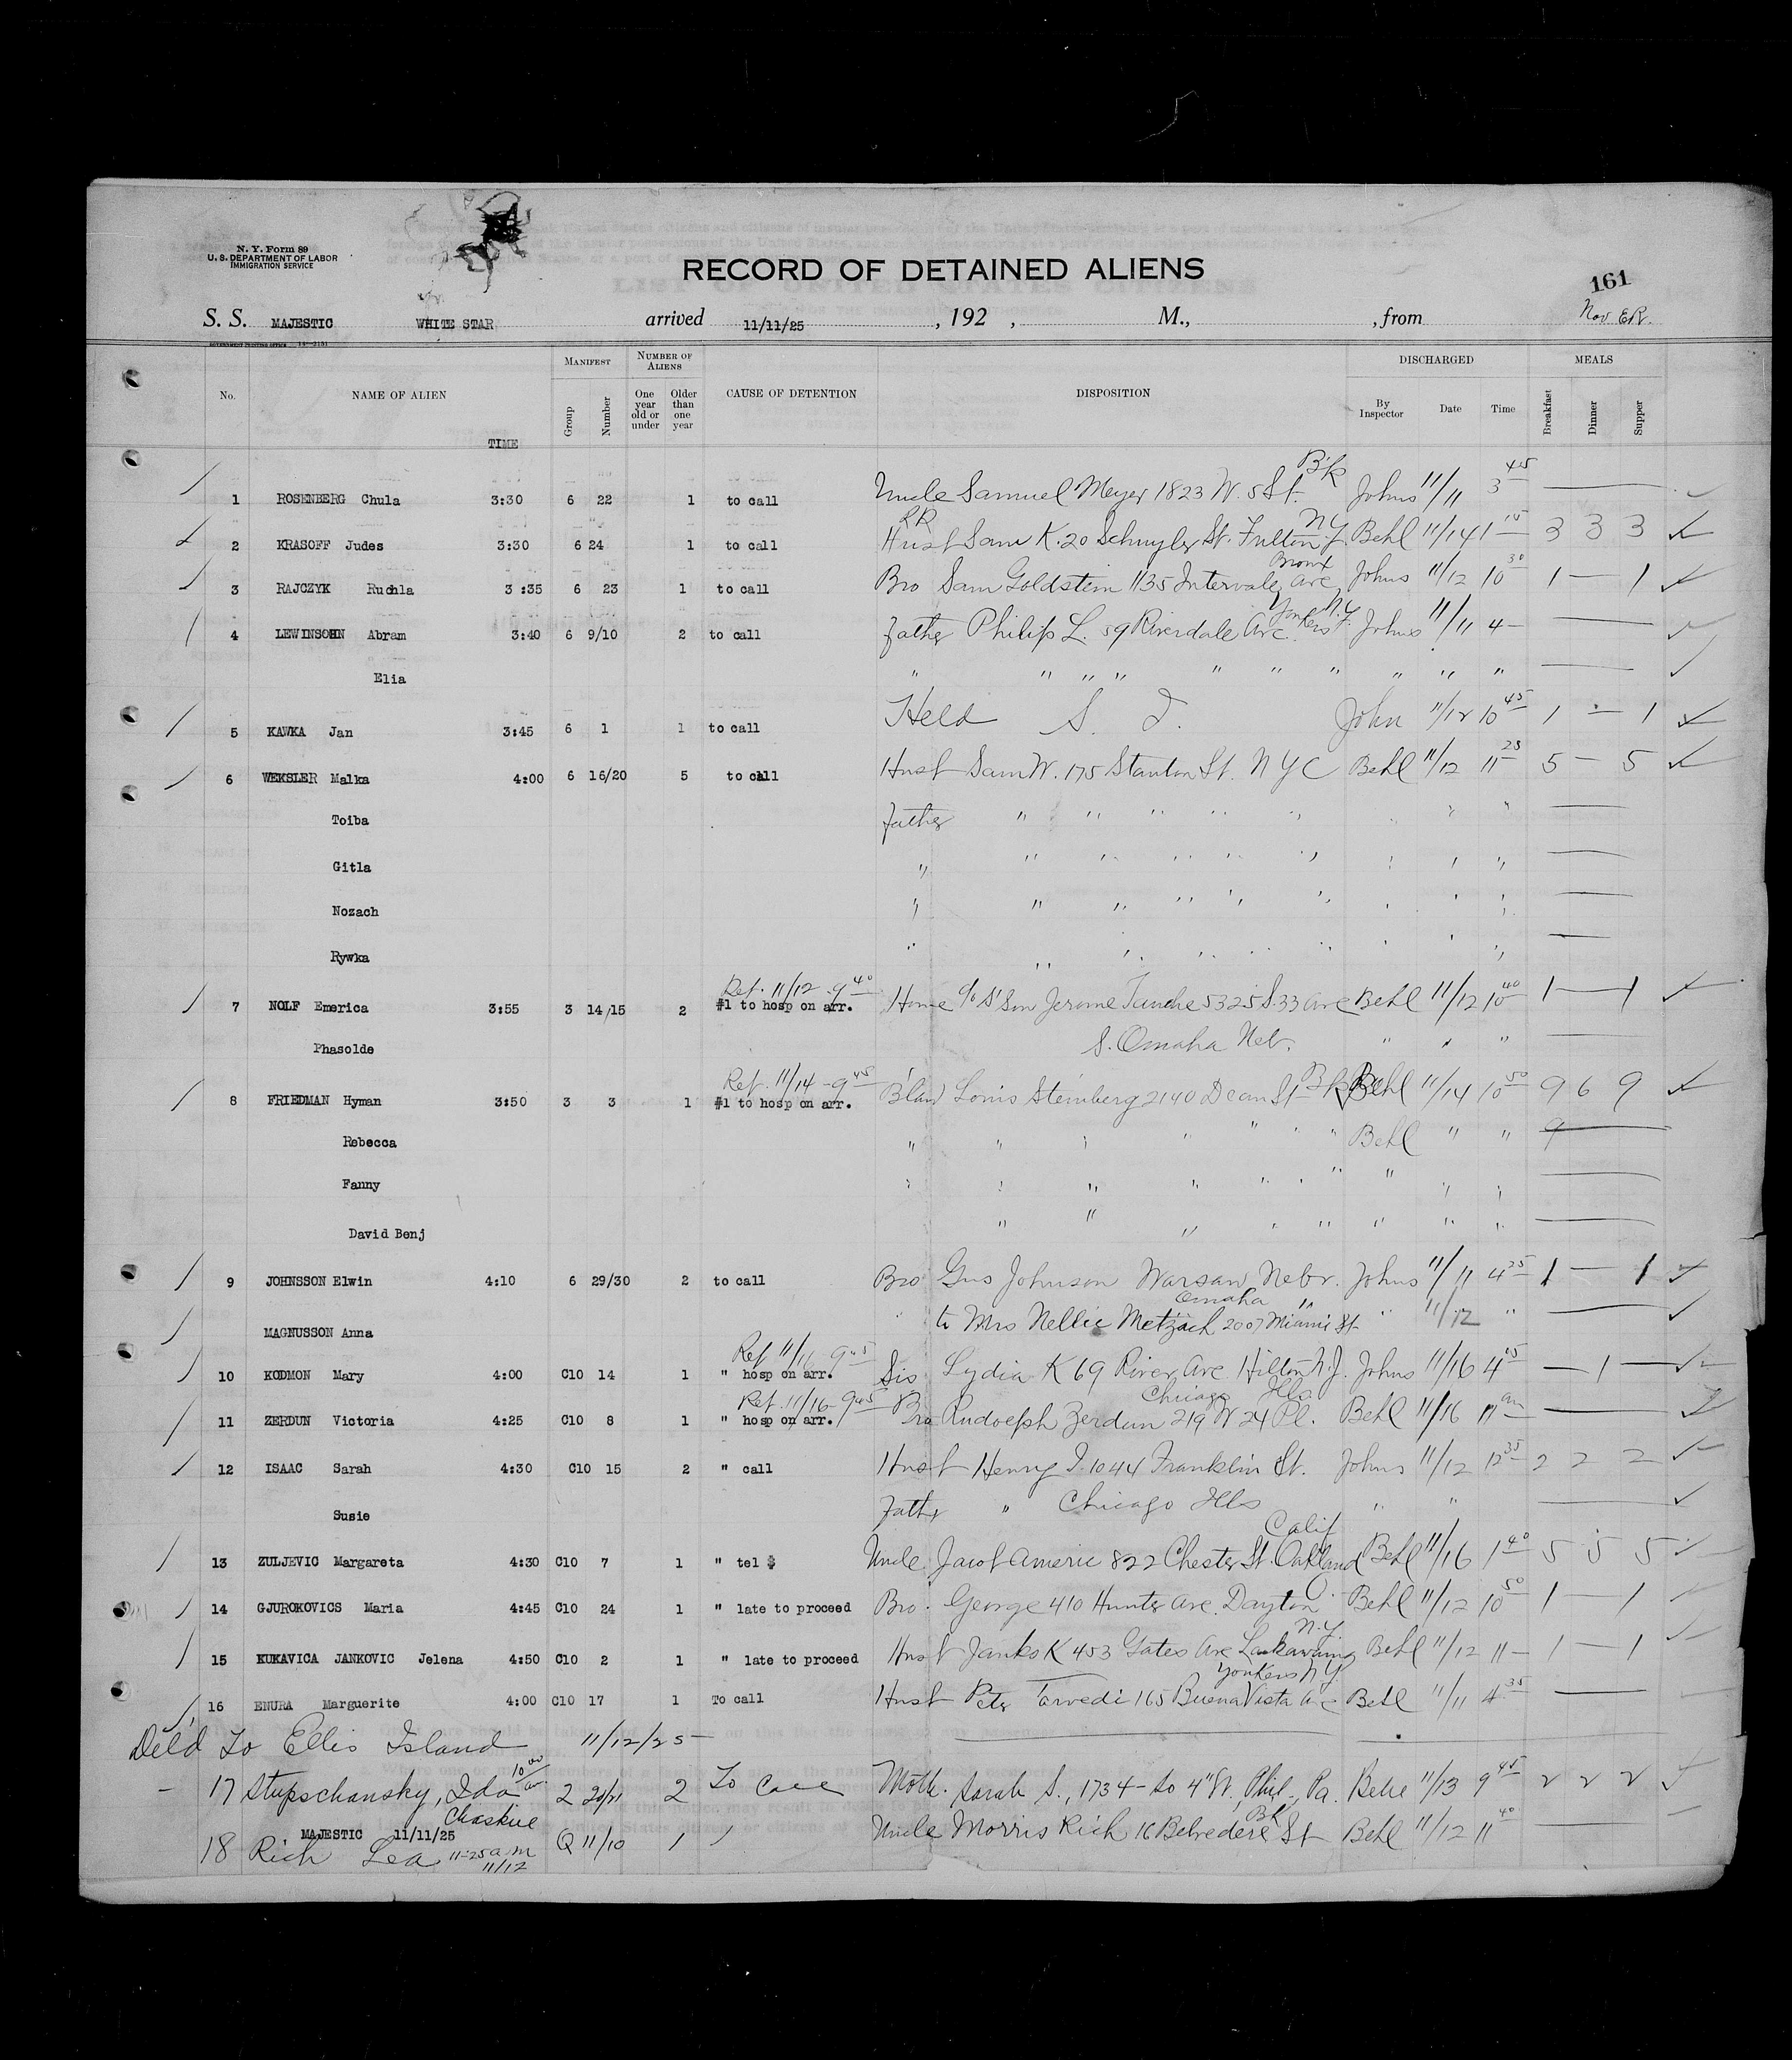 N. Y. Form 89
U. S. DEPARTMENT OF LABOR
IMMIGRATION SERVICE
RECORD OF DETAINED ALIENS
161
Nov ER.
S. S. MAJESTIC WHITE STAR arrived 11/11/25 , 192 , M., , from
No. NAME OF ALIEN TIME MANIFEST Group Number NUMBER OF ALIENS One year old or under Older than one year CAUSE OF DETENTION DISPOSITION DISCHARGED By Inspector Date Time MEALS Breakfast Dinner Supper
1 ROSENBERG Chula 3:30 6 22 1 to call Uncle Samuel Meyer 1823 W. 5 St. Bk Johns 11/11 3 45
2 KRASOFF Judes 3:30 6 24 1 to call RR Husb Sam K. 20 Schuyler St. Fulton N.Y. Behl 11/14 1 15 3 3 3
3 RAJCZYK Ruchla 3:35 6 23 1 to call Bro Sam Goldstein 1135 Intervale Ave Bronx Johns 11/12 10 30 1 — 1
4 LEWINSOHN Abram 3:40 6 9/10 2 to call Father Philip L. 59 Riverdale Ave. Yonkers N.Y. Johns 11/11 4 —
Elia " " " " " " " " " "
5 KAWKA Jan 3:45 6 1 1 to call Held S. I. John 11/12 10 45 1 — 1
6 WEKSLER Malka 4:00 6 16/20 5 to call Husb Sam W. 175 Stanton St. N Y C Behl 11/12 11 25 5 — 5
Toiba Father " " " " "
Gitla " " " " " "
Nozach " " " " " "
Rywka " " " " " "
7 NOLF Emerica 3:55 3 14/15 2 Ret. 11/12 - 9 40 #1 to hosp on arr. Home c/o S'Son Jerome 5325 S. 33 Ave Behl 11/12 10 40 1 — 1
Phasolde S. Omaha Neb. " " "
8 FRIEDMAN Hyman 3:50 3 3 1 Ret. 11/14 - 9 45 #1 to hosp on arr. B'law Louis Steinberg 2140 Dean St Bk Behl 11/14 10 50 9 6 9
Rebecca " " " " " " Behl " " 9
Fanny " " " " " " " " "
David Benj " " " " " " " "
9 JOHNSSON Elwin 4:10 6 29/30 2 to call Bro Gus Johnson Warsaw Nebr. Johns 11/11 4 25 1 — 1
MAGNUSSON Anna " to Mrs Nellie Metzach 2007 Miami St Omaha " " 11/12 "
10 KODMON Mary 4:00 C10 14 1 Ret 11/16 - 9 45 " hosp on arr. Sis Lydia K 69 River Ave Hilton N.J. Johns 11/16 4 05 — 1 —
11 ZERDUN Victoria 4:25 C10 8 1 Ret. 11/16 - 9 45 " hosp on arr. Bro Rudolph Zerdun 219 W 24 Pl. Chicago Ills Behl 11/16 11 am
12 ISAAC Sarah 4:30 C10 15 2 " call Husb Henry I. 1044 Franklin St. Johns 11/12 12 35 2 2 2
Susie Father " Chicago Ills " "
13 ZULJEVIC Margareta 4:30 C10 7 1 " tel $ Uncle Jacob Americ 822 Chester St. Oakland Calif Behl 11/16 1 40 5 5 5
14 GJUROKOVICS Maria 4:45 C10 24 1 " late to proceed Bro. George 410 Hunter Ave. Dayton O. Behl 11/12 10 50 1 — 1
15 KUKAVICA JANKOVIC Jelena 4:50 C10 2 1 " late to proceed Husb Janko K 453 Gates Ave Lackawanna N.Y. Behl 11/12 11 — 1 — 1
16 ENURA Marguerite 4:00 C10 17 1 To call Husb Peter Tarvedi 165 Buena Vista Ave Yonkers N Y Behl 11/11 4 35
Del'd to Ellis Island 11/12/25
17 Stupschansky, Ida 10 00 am 2 20/21 2 To call Moth. Sarah S., 1734 - So 4" St, Phil., Pa. Behl 11/13 9 45 2 2 2
Chaskiie
MAJESTIC 11/11/25
18 Rich Lea 11-25 am 11/12 Q 11/10 1 Uncle Morris Rich 16 Belvedere St Bk Behl 11/12 11 40